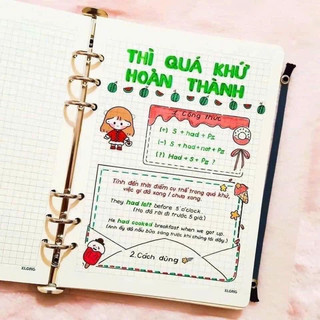 THÌ QUÁ KHỨ
HOÀN THÀNH
1. Công thức
(+) S + had + P₂
(-) S + had + not + P₂
(?) Had + S + P₂ ?
Tính đến thời điểm cụ thể trong quá khứ,
việc gì đã xong / chưa xong.
They had left before 5 o'clock.
(Họ đã rời đi trước 5 giờ.)
He had cooked breakfast when we got up.
(Anh ấy đã nấu bữa sáng trước khi chúng tôi dậy.)
2. Cách dùng
KLONG
KLONG